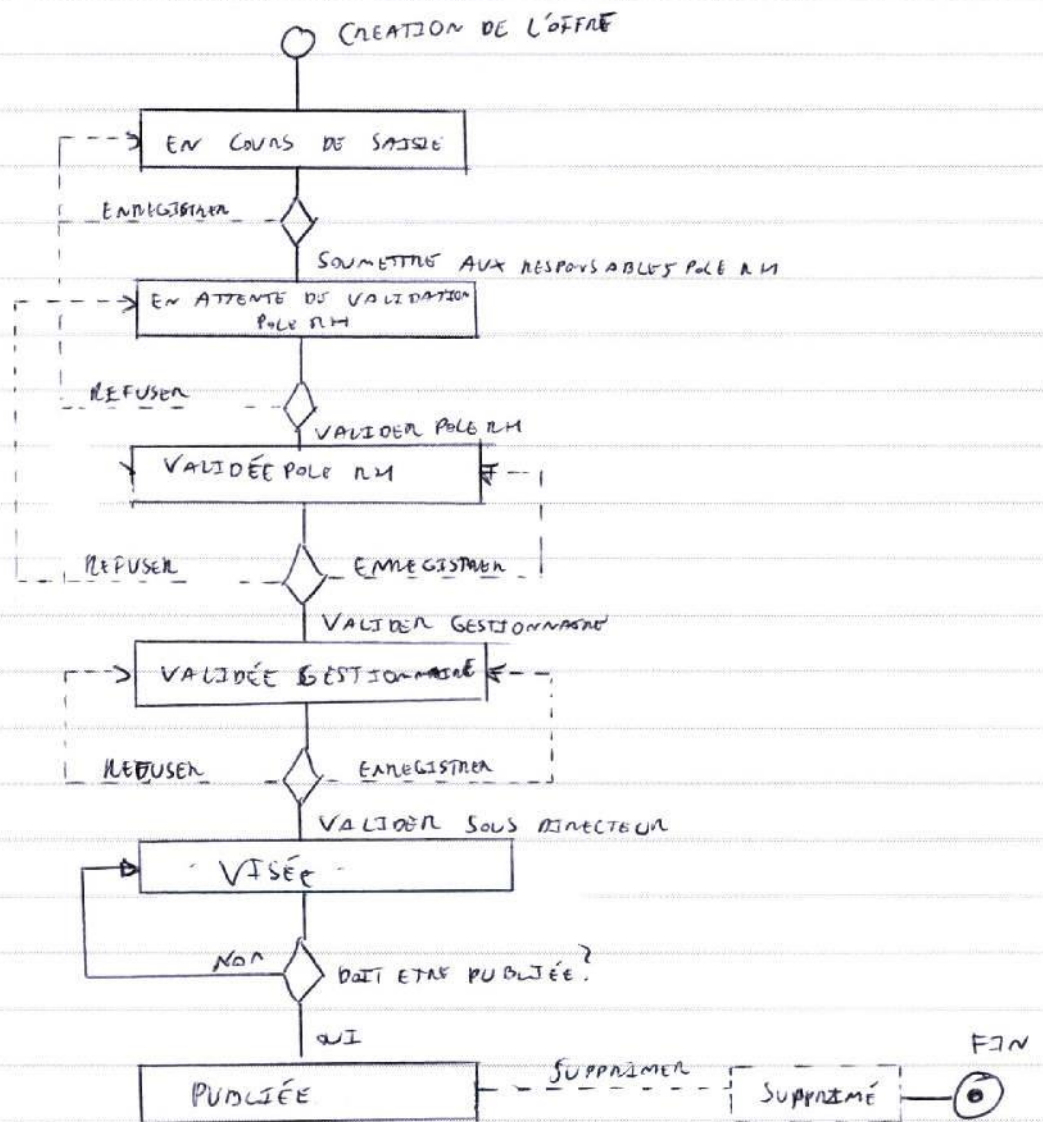 CREATION DE L'OFFRE
EN COURS DE SAISIE
ENREGISTRER
SOUMETTRE AUX RESPONSABLES POLE RH
EN ATTENTE DE VALIDATION
POLE RH
REFUSER
VALIDER POLE RH
VALIDÉE POLE RH
REFUSER
ENREGISTRER
VALIDER GESTIONNAIRE
VALIDÉE GESTIONNAIRE
REFUSER
ENREGISTRER
VALIDER SOUS DIRECTEUR
VISÉE
NON
DOIT ETRE PUBLIÉE?
OUI
FIN
SUPPRIMER
PUBLIÉE
SUPPRIMÉ